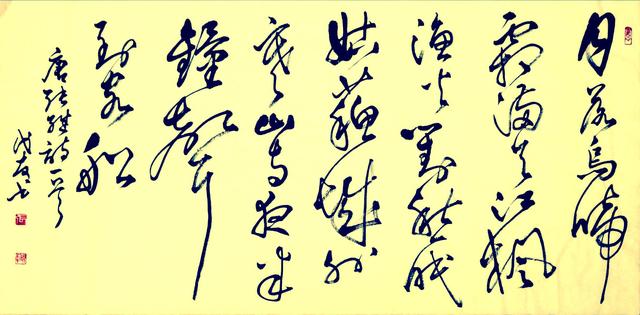 月落烏啼
霜滿天江楓
漁火對愁眠
姑蘇城外
寒山寺夜半
鐘聲
到客船
唐張繼詩一首